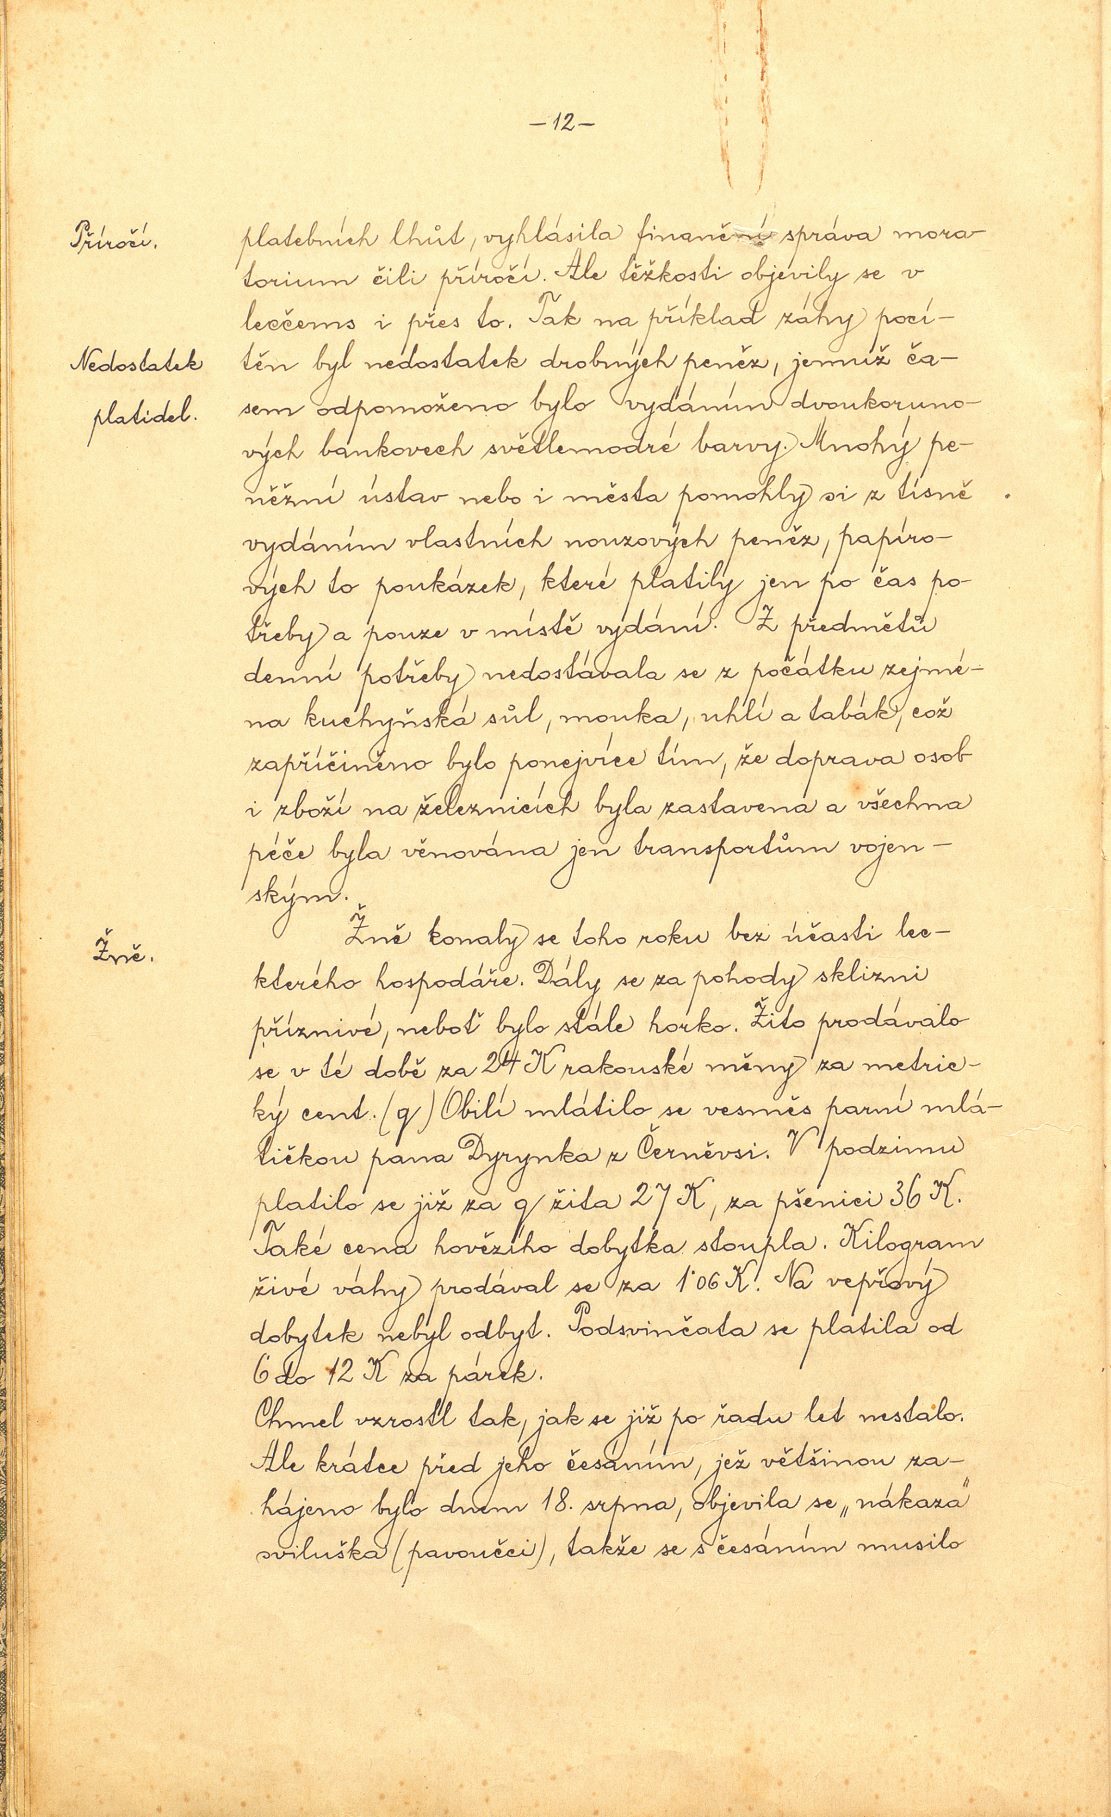 – 12 –
Příročí.
platebních lhůt, vyhlásila finanční správa mora-
torium čili příročí. Ale těžkosti objevily se v
lecčems i přes to. Tak na příklad záhy pocí-
Nedostatek
těn byl nedostatek drobných peněz, jemuž ča-
platidel.
sem odpomoženo bylo vydáním dvoukoruno-
vých bankovech světlemodré barvy. Mnohý pe-
něžní ústav nebo i města pomohly si z tísně
vydáním vlastních nouzových peněz, papíro-
vých to poukázek, které platily jen po čas po-
třeby a pouze v místě vydání. Z předmětů
denní potřeby nedostávala se z počátku zejmé-
na kuchyňská sůl, mouka, uhlí a tabák, což
zapříčiněno bylo ponejvíce tím, že doprava osob
i zboží na železnicích byla zastavena a všechna
péče byla věnována jen transportům vojen-
ským.
Žně.
Žně konaly se toho roku bez účasti lec-
kterého hospodáře. Dály se za pohody sklizni
příznivé, neboť bylo stále horko. Žito prodávalo
se v té době za 24 K rakouské měny za metric-
ký cent. (q) Obilí mlátilo se vesměs parní mlá-
tičkou pana Dyrynka z Černěvsi. V podzimu
platilo se již za q žita 27 K, za pšenici 36 K.
Také cena hovězího dobytka stoupla. Kilogram
živé váhy prodával se za 1·06 K. Na vepřový
dobytek nebyl odbyt. Podsvinčata se platila od
6 do 12 K za párek.
Chmel vzrostl tak, jak se již po řadu let nestalo.
Ale krátce před jeho česáním, jež většinou za-
hájeno bylo dnem 18. srpna, objevila se „nákaza"
sviluška (pavoučci), takže se s česáním musilo